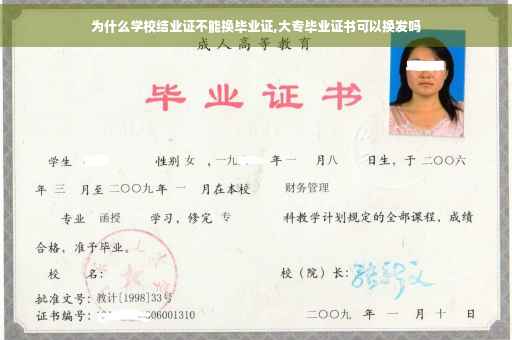 为什么学校结业证不能换毕业证,大专毕业证书可以换发吗
成人高等教育
毕业证书
学生 性别 女 ，一九 年 一 月八 日生，于 二〇〇六
年 三 月至 二〇〇九 年 一 月在本校 财务管理
专业 函授 学习，修完 专 科教学计划规定的全部课程，成绩
合格，准予毕业。
校 名： 校（院）长：
批准文号：教计[1998]33号
证书编号： 06001310 二〇〇九 年 一 月 十 日